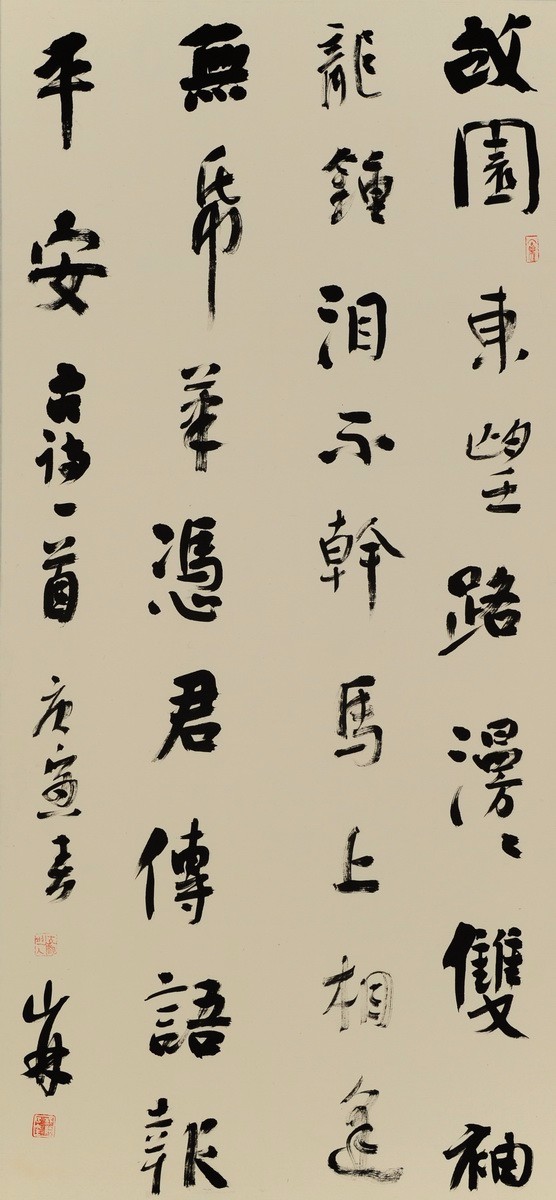 故園東望路漫〻雙袖
龍鍾泪不幹馬上相逢
無帋筆憑君傳語報
平安 古詩一首 庚寅春